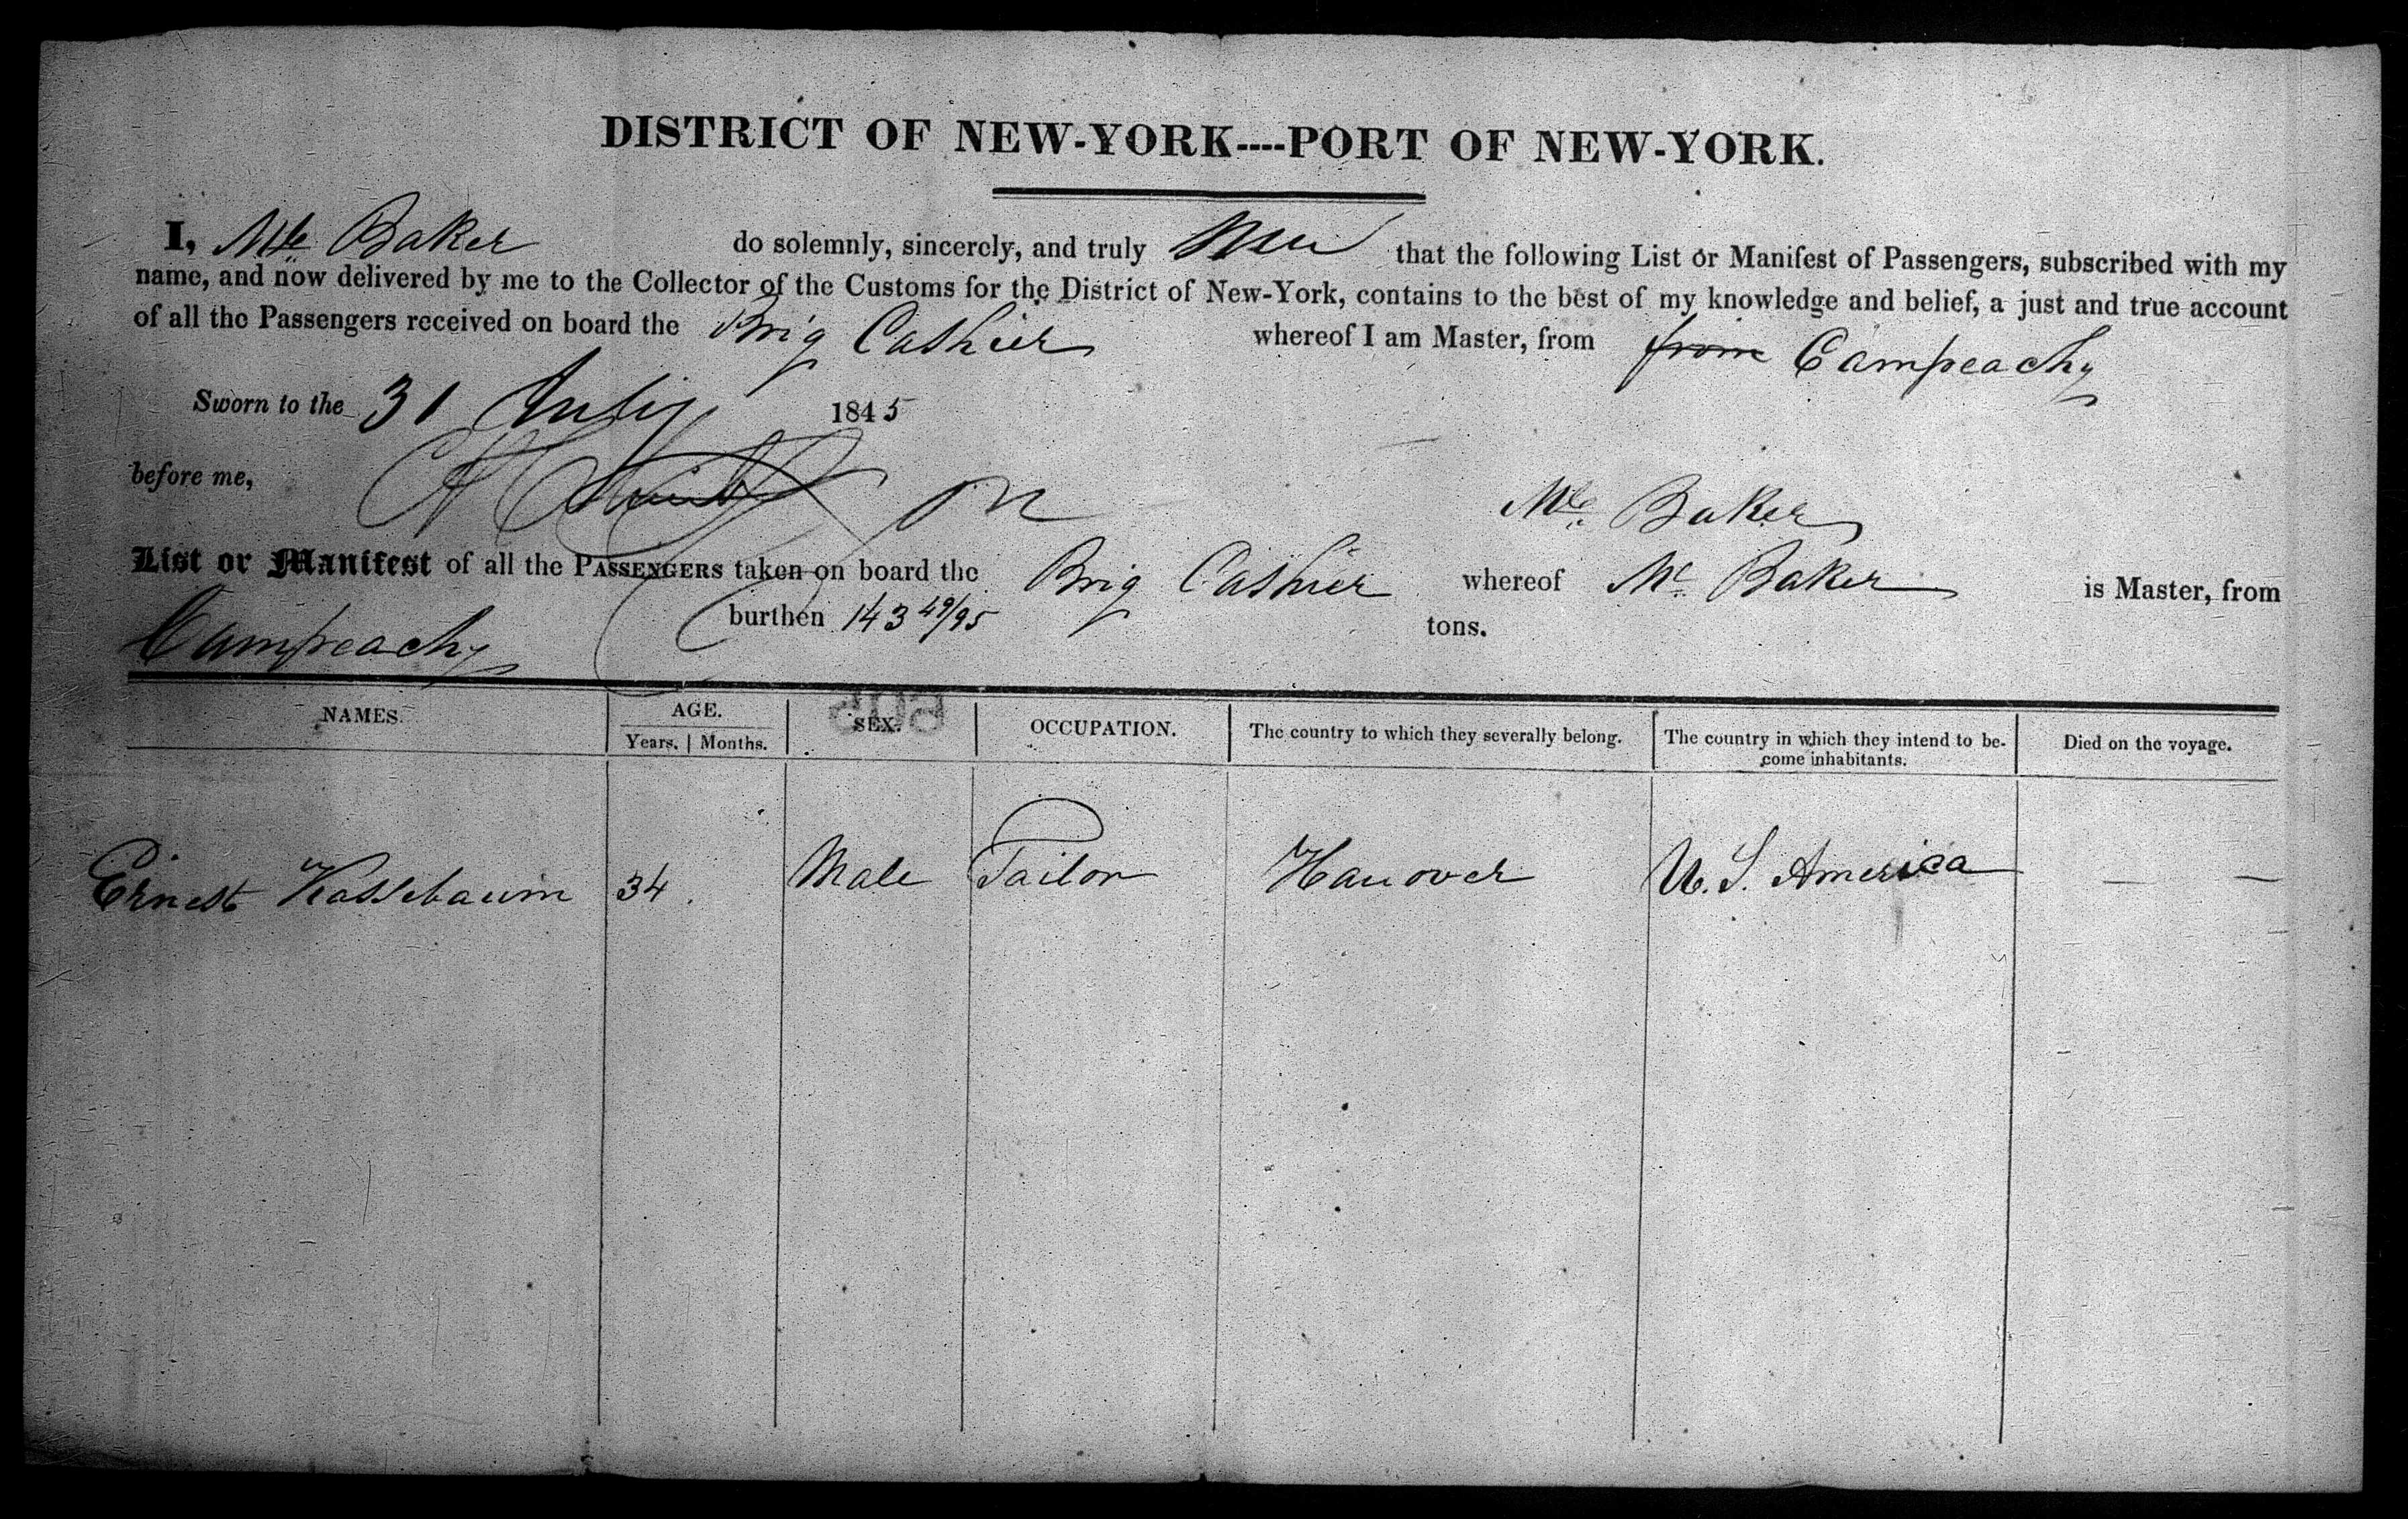 DISTRICT OF NEW-YORK----PORT OF NEW-YORK.
I, Baker do solemnly, sincerely, and truly that the following List or Manifest of Passengers, subscribed with my
name, and now delivered by me to the Collector of the Customs for the District of New-York, contains to the best of my knowledge and belief, a just and true account
of all the Passengers received on board the Brig Cashier whereof I am Master, from from Campeachy
Sworn to the 31 July 1845
before me,
Baker
List or Manifest of all the PASSENGERS taken on board the Brig Cashier whereof Baker is Master, from
Campeachy burthen 143 49/95 tons.
505
NAMES. AGE. SEX. OCCUPATION. The country to which they severally belong. The country in which they intend to be-
Years. Months. come inhabitants. Died on the voyage.
Ernest Kassebaum 34 Male Tailor Hanover U. S. America — —